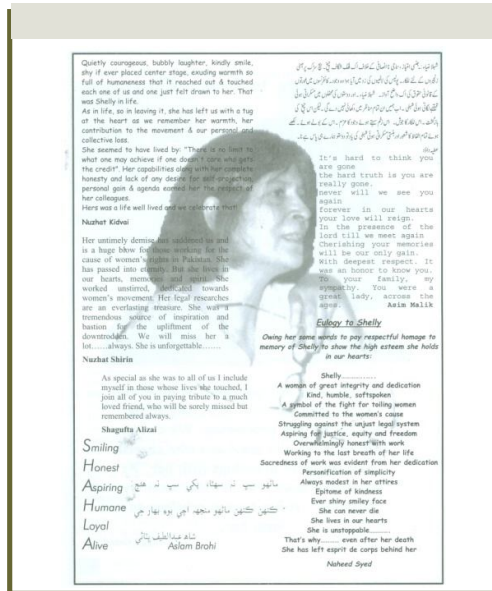 Quietly courageous, bubbly laughter, kindly smile,
shy if ever placed center stage, exuding warmth so
full of humaneness that it reached out & touched
each one of us and one just felt drawn to her. That
was Shelly in life.
As in life, so in leaving it, she has left us with a tug
at the heart as we remember her warmth, her
contribution to the movement & our personal and
collective loss.
She seemed to have lived by: "There is no limit to
what one may achieve if one doesn't care who gets
the credit". Her capabilities along with her complete
honesty and lack of any desire for self-projection,
personal gain & agenda earned her the respect of
her colleagues.
Hers was a life well lived and we celebrate that!
Nuzhat Kidvai
Her untimely demise has saddened us and
is a huge blow for those working for the
cause of women's rights in Pakistan. She
has passed into eternity. But she lives in
our hearts, memories and spirit. She
worked unstirred, dedicated towards
women's movement. Her legal researches
are an everlasting treasure. She was a
tremendous source of inspiration and
bastion for the upliftment of the
downtrodden. We will miss her a
lot……always. She is unforgettable…….
Nuzhat Shirin
As special as she was to all of us I include
myself in those whose lives she touched, I
join all of you in paying tribute to a much
loved friend, who will be sorely missed but
remembered always.
Shagufta Alizai
Smiling
Honest
Aspiring
Humane
Loyal
Alive
شاھ عبداللطيف ڀٽائي
Aslam Brohi
It's hard to think you
are gone
the hard truth is you are
really gone.
never will we see you
again
forever in our hearts
your love will reign.
In the presence of the
lord till we meet again
Cherishing your memories
will be our only gain.
With deepest respect. It
was an honor to know you.
To your family, my
sympathy. You were a
great lady, across the
ages. Asim Malik
Eulogy to Shelly
Owing her some words to pay respectful homage to
memory of Shelly to show the high esteem she holds
in our hearts:
Shelly……………
A woman of great integrity and dedication
Kind, humble, softspoken
A symbol of the fight for toiling women
Committed to the women's cause
Struggling against the unjust legal system
Aspiring for justice, equity and freedom
Overwhelmingly honest with work
Working to the last breath of her life
Sacredness of work was evident from her dedication
Personification of simplicity
Always modest in her attires
Epitome of kindness
Ever shiny smiley face
She can never die
She lives in our hearts
She is unstoppable…………
That's why……… even after her death
She has left esprit de corps behind her
Naheed Syed